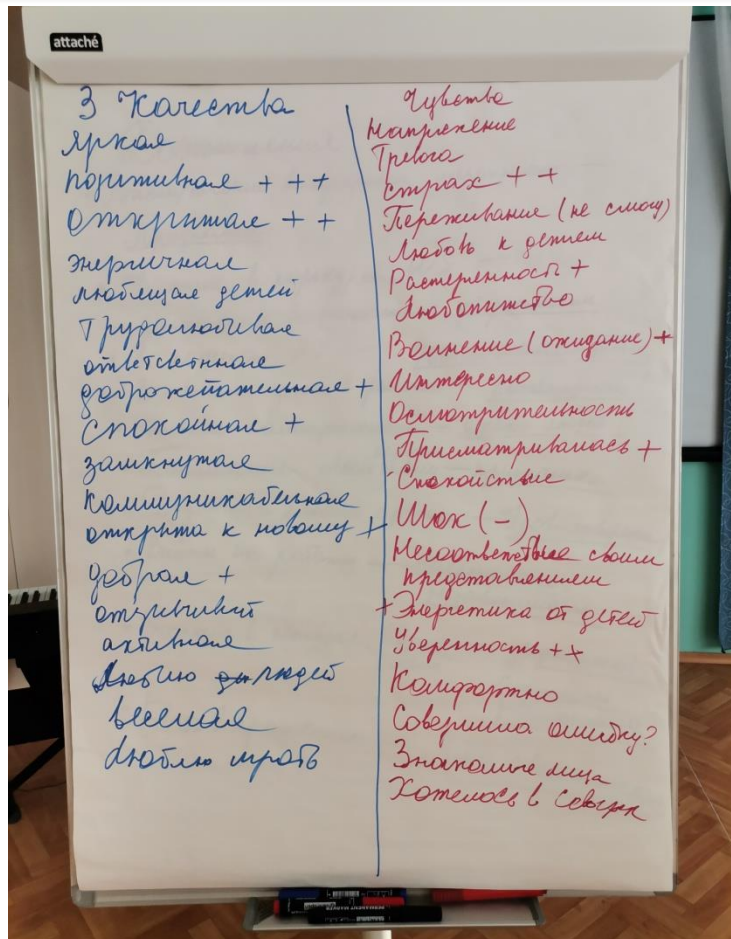 attaché
3 Качества
яркая
позитивная + + +
открытая + +
энергичная
любящая детей
трудолюбивая
ответсветнная
доброжелательная +
спокойная +
замкнутая
коммуникабельная
открыта к новому +
добрая +
отзывчивый
активная
Люблю людей
веселая
Люблю играть
Чувства
Напряжение
Тревога
страх + +
Переживание (не смогу)
Любовь к детям
Растерянность +
Любопытство
Волнение (ожидание) +
Интересно
Осмотрительность
Присматривалась +
Спокойствие
Шок (-)
Несоответствие своим
представлениям
+ Энергетика от детей
Уверенность + +
Комфортно
Совершила ошибку?
Знакомые лица
Хотелось в